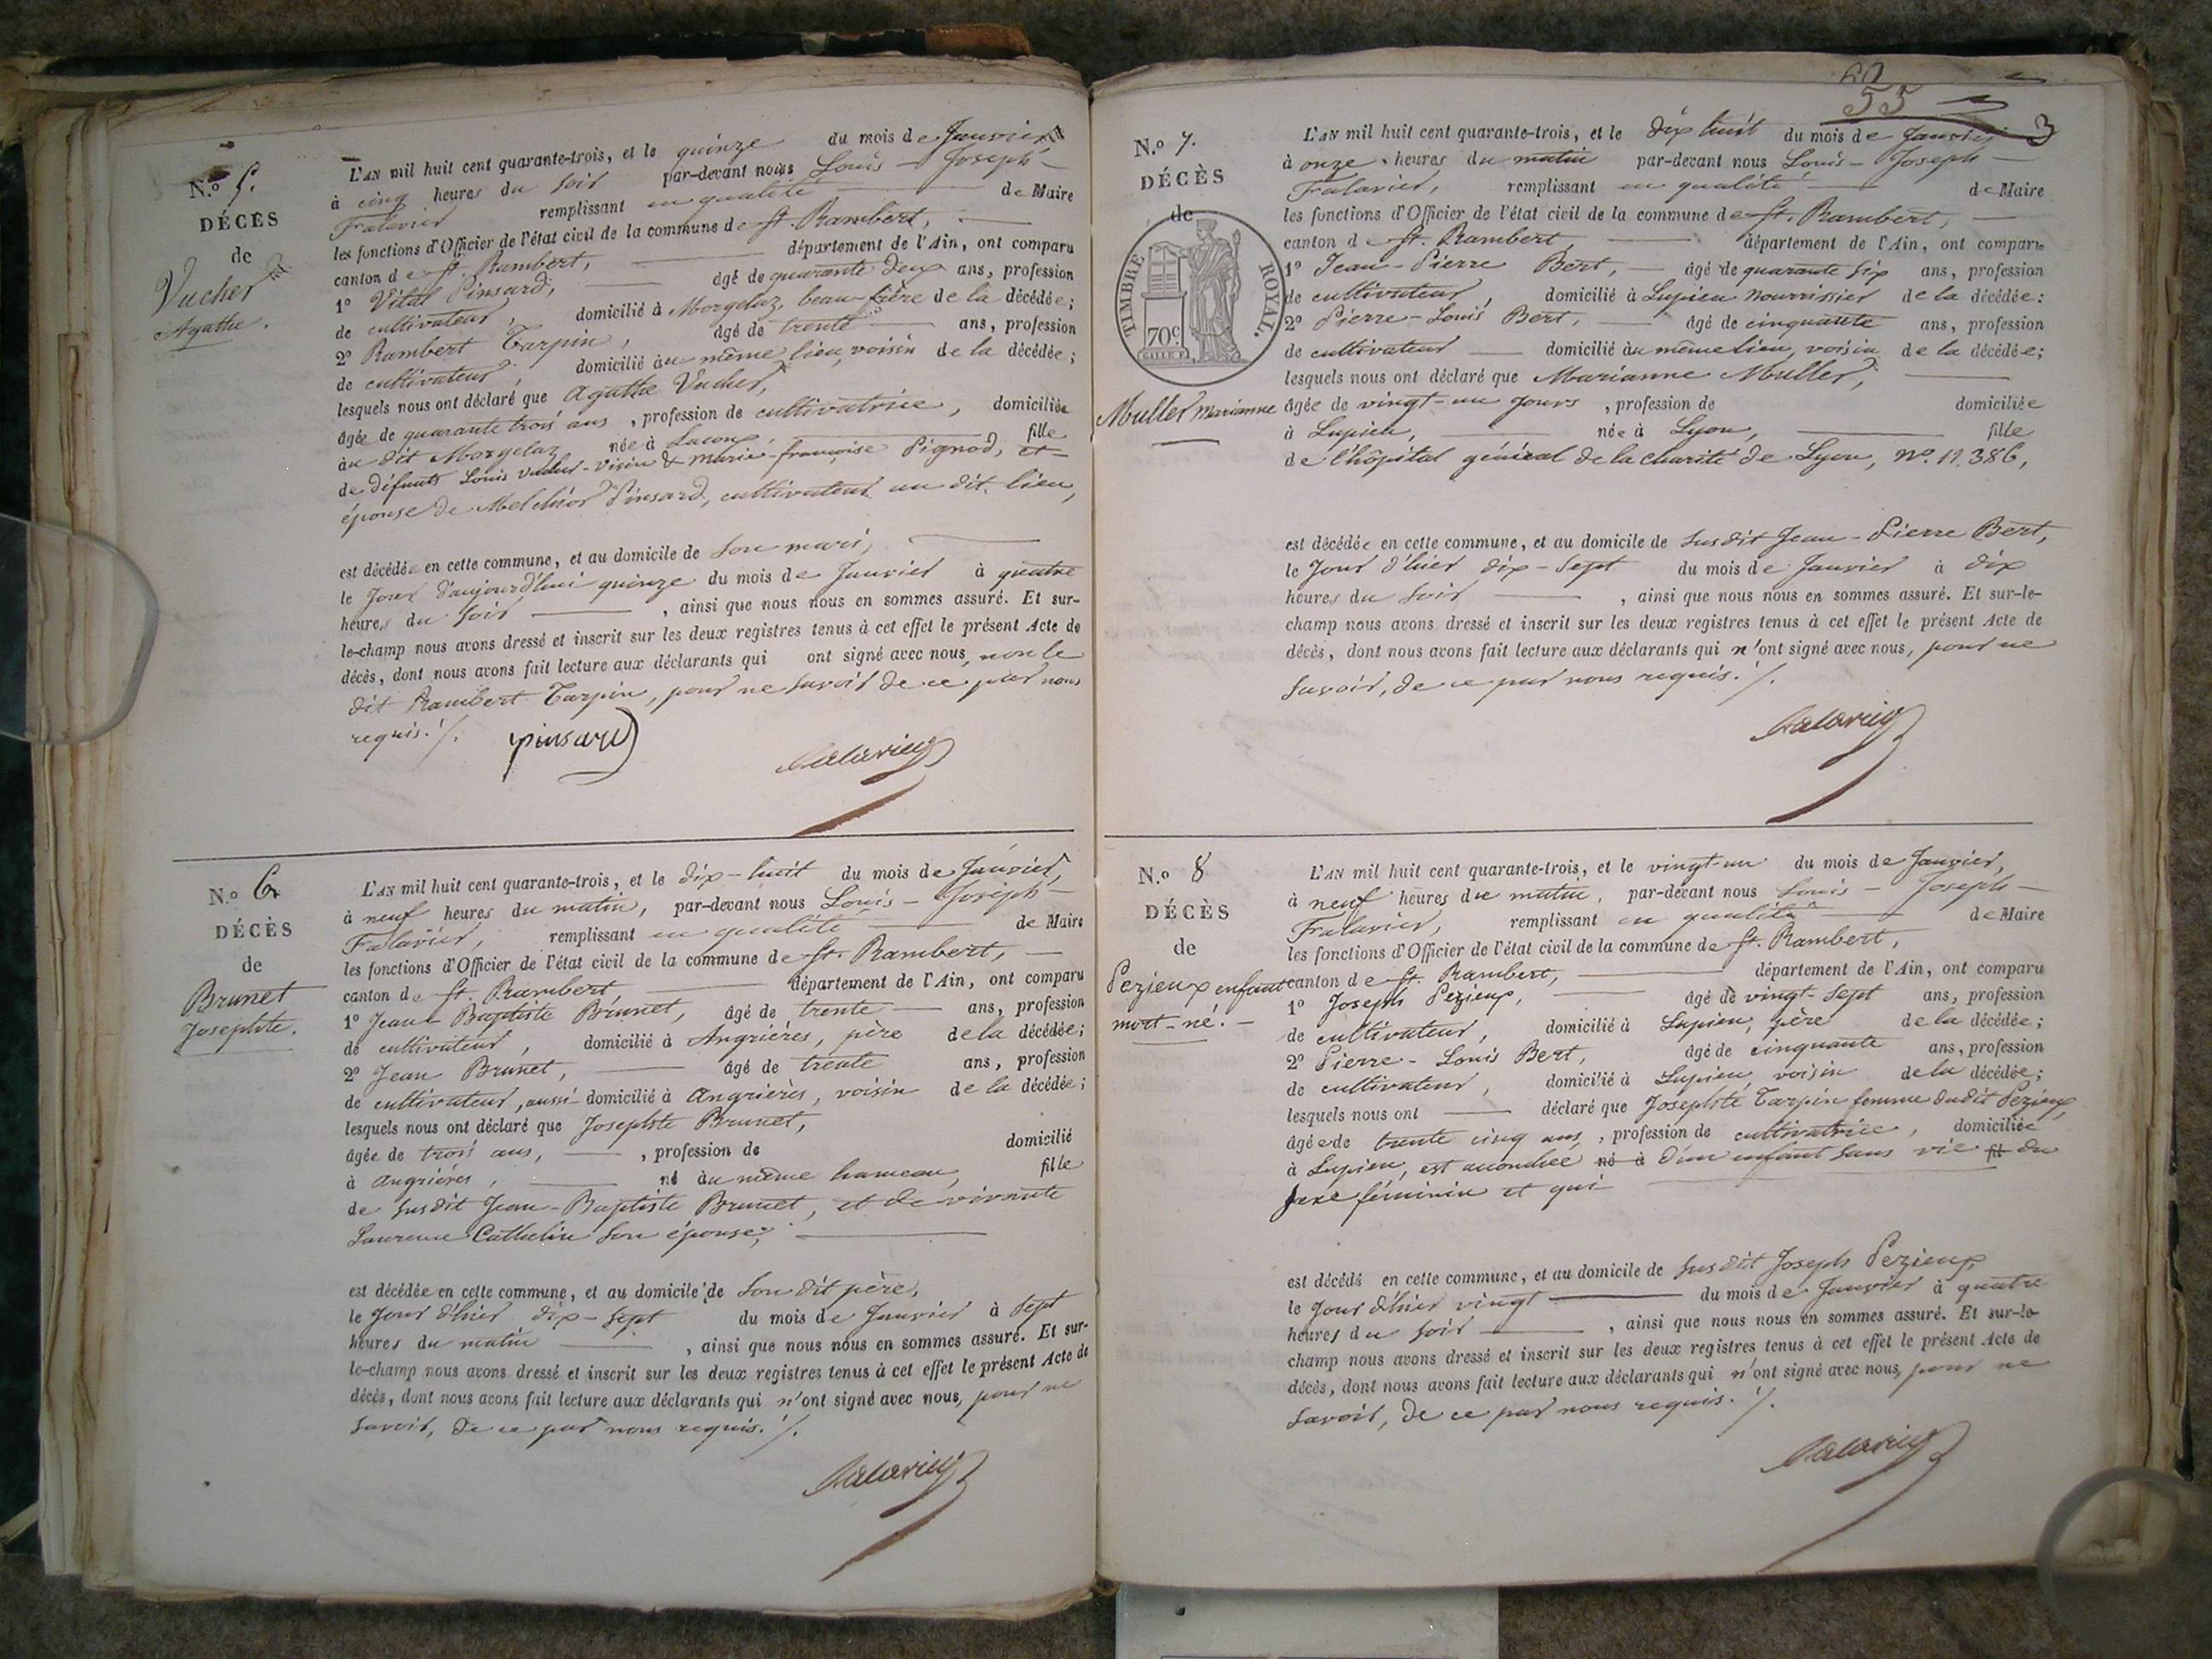 N.o 5.
DÉCÈS
de
Vucher
Agathe.
L'AN mil huit cent quarante-trois, et le quinze du mois de Janvier
à cinq heures du soir par-devant nous Louis-Joseph-
Falavier remplissant en qualité de Maire
les fonctions d'Officier de l'état civil de la commune de St. Rambert,
canton de St. Rambert, département de l'Ain, ont comparu
1o Vital Pinsard, âgé de quarante deux ans, profession
de cultivateur, domicilié à Morgelaz, beau-frère de la décédée;
2o Rambert Tarpin, âgé de trente ans, profession
de cultivateur, domicilié au même lieu, voisin de la décédée;
lesquels nous ont déclaré que Agathe Vucher,
âgée de quarante trois ans, profession de cultivatrice, domiciliée
au dit Morgelaz née à Lacoux, fille
de défunts Louis Vucher-Visin & Marie-françoise Pignod, et
épouse de Melchior Pinsard, cultivateur au dit lieu,
est décédée en cette commune, et au domicile de son mari,
le jour d'aujourd'hui quinze du mois de Janvier à quatre
heures du soir, ainsi que nous nous en sommes assuré. Et sur-
le-champ nous avons dressé et inscrit sur les deux registres tenus à cet effet le présent Acte de
décès, dont nous avons fait lecture aux déclarants qui ont signé avec nous, non le
dit Rambert Tarpin, pour ne savoir de ce par nous
requis./.
pinsard
Falavier
N.o 6
DÉCÈS
de
Brunet
Josephte.
L'AN mil huit cent quarante-trois, et le dix-huit du mois de Janvier,
à neuf heures du matin, par-devant nous Louis-Joseph-
Falavier, remplissant en qualité de Maire
les fonctions d'Officier de l'état civil de la commune de St. Rambert,
canton de St. Rambert, département de l'Ain, ont comparu
1o Jean Baptiste Brunet, âgé de trente ans, profession
de cultivateur, domicilié à Angrières, père de la décédée;
2o Jean Brunet, âgé de trente ans, profession
de cultivateur, aussi domicilié à Angrières, voisin de la décédée;
lesquels nous ont déclaré que Josephte Brunet,
âgée de trois ans, profession de domicilié
à Angrières, né au même hameau, fille
de susdit Jean-Baptiste Brunet, et de vivante
Laurence Cathelin son épouse,
est décédée en cette commune, et au domicile de son dit père,
le jour d'hier dix-sept du mois de Janvier à sept
heures du matin, ainsi que nous nous en sommes assuré. Et sur-
le-champ nous avons dressé et inscrit sur les deux registres tenus à cet effet le présent Acte de
décès, dont nous avons fait lecture aux déclarants qui n'ont signé avec nous, pour ne
savoir, de ce par nous requis./.
Falavier
60
55
3
N.o 7.
DÉCÈS
de
TIMBRE ROYAL.
70c.
Muller Marianne
L'AN mil huit cent quarante-trois, et le dix huit du mois de Janvier
à onze heures du matin par-devant nous Louis-Joseph-
Falavier, remplissant en qualité de Maire
les fonctions d'Officier de l'état civil de la commune de St. Rambert,
canton de St. Rambert, département de l'Ain, ont comparu
1o Jean-Pierre Bert, âgé de quarante six ans, profession
de cultivateur, domicilié à Lupieu nourrissier de la décédée:
2o Pierre-Louis Bert, âgé de cinquante ans, profession
de cultivateur domicilié au même lieu, voisin de la décédée;
lesquels nous ont déclaré que Marianne Muller,
âgée de vingt-un jours, profession de domiciliée
à Lupieu, née à Lyon, fille
de l'hôpital général de la charité de Lyon, No. 11,386,
est décédée en cette commune, et au domicile de susdit Jean-Pierre Bert,
le jour d'hier dix-sept du mois de Janvier à dix
heures du soir, ainsi que nous nous en sommes assuré. Et sur-le-
champ nous avons dressé et inscrit sur les deux registres tenus à cet effet le présent Acte de
décès, dont nous avons fait lecture aux déclarants qui n'ont signé avec nous, pour ne
savoir, de ce par nous requis./.
Falavier
N.o 8
DÉCÈS
de
Pezieux enfant
mort-né.
L'AN mil huit cent quarante-trois, et le vingt-un du mois de Janvier,
à neuf heures du matin, par-devant nous Louis-Joseph-
Falavier, remplissant en qualité de Maire
les fonctions d'Officier de l'état civil de la commune de St. Rambert,
canton de St. Rambert, département de l'Ain, ont comparu
1o Joseph Pezieux, âgé de vingt-sept ans, profession
de cultivateur, domicilié à Lupieu, père de la décédée;
2o Pierre-Louis Bert, âgé de cinquante ans, profession
de cultivateur, domicilié à Lupieu voisin de la décédée;
lesquels nous ont déclaré que Josephte Tarpin femme dudit Pezieux,
âgée de trente cinq ans, profession de cultivatrice, domiciliée
à Lupieu, est accouchée né à d'un enfant sans vie fil du
sexe féminin et qui
est décédé en cette commune, et au domicile de susdit Joseph Pezieux,
le jour d'hier vingt du mois de Janvier à quatre
heures du soir, ainsi que nous nous en sommes assuré. Et sur-le-
champ nous avons dressé et inscrit sur les deux registres tenus à cet effet le présent Acte de
décès, dont nous avons fait lecture aux déclarants qui n'ont signé avec nous, pour ne
savoir, de ce par nous requis./.
Falavier